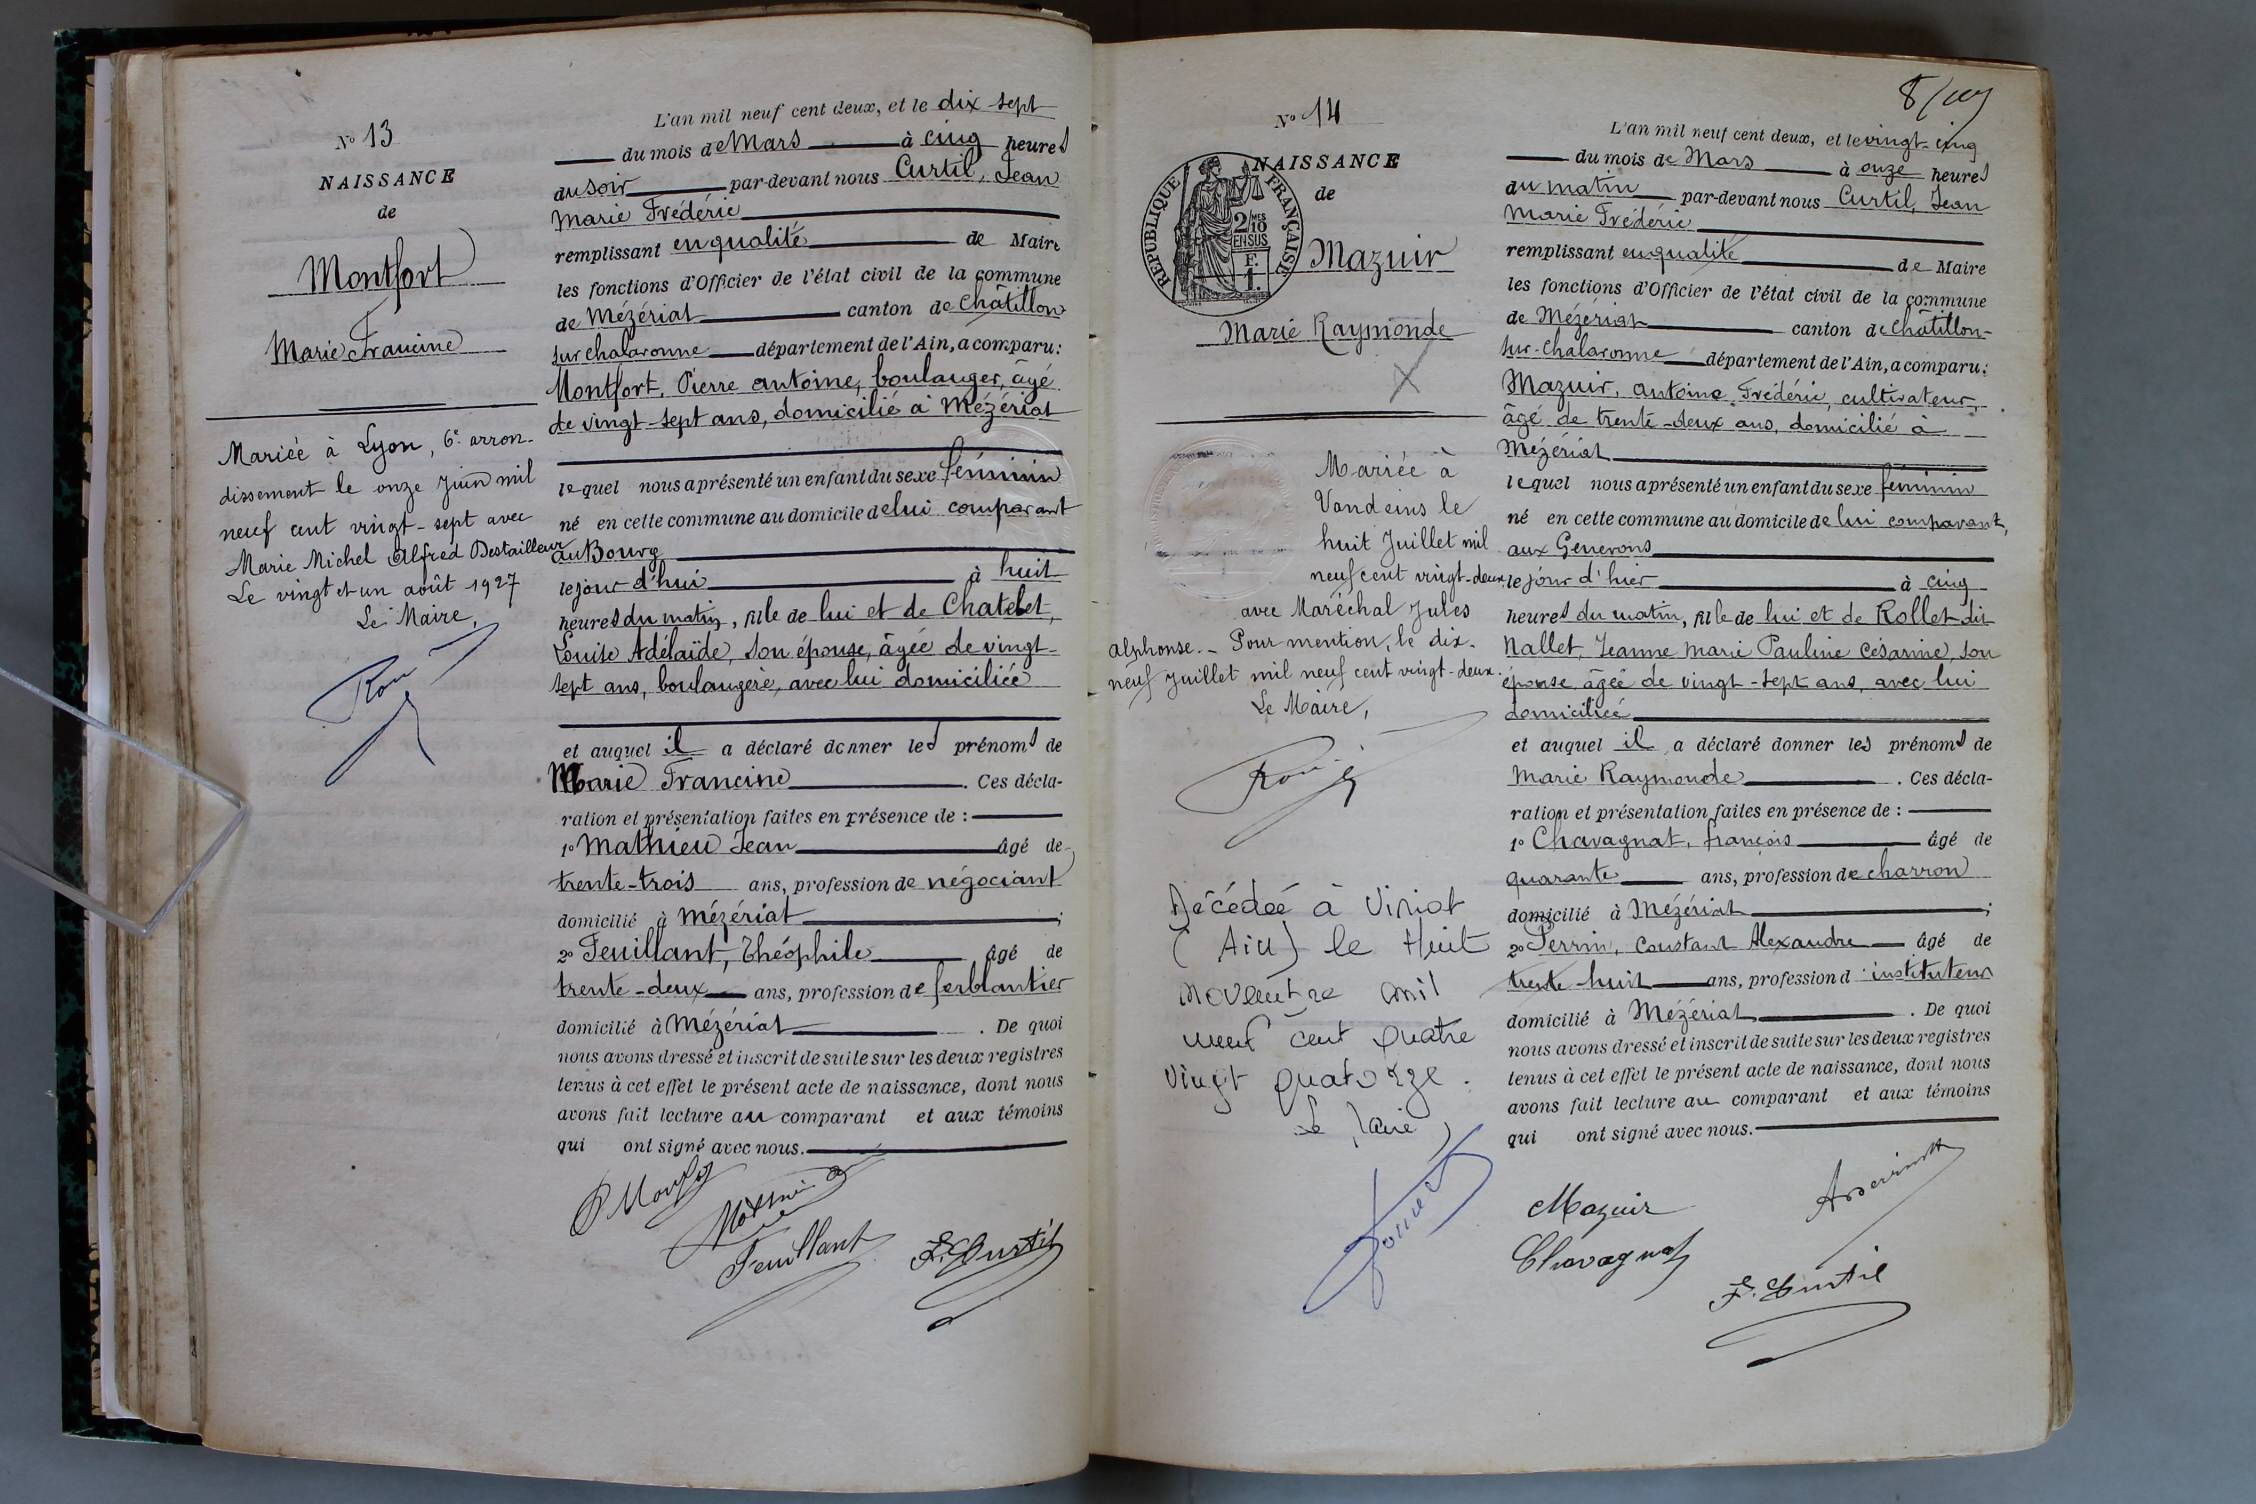 N° 13
NAISSANCE
de
Montfort
Marie Francine
Mariée à Lyon, 6e arron-
dissement le onze Juin mil
neuf cent vingt-sept avec
Marie Michel Alfred Destailleur
Le vingt et un août 1927
Le Maire,
L'an mil neuf cent deux, et le dix-sept
du mois de Mars à cinq heures
du soir par-devant nous Curtil, Jean
Marie Frédéric
remplissant en qualité de Maire
les fonctions d'Officier de l'état civil de la commune
de Mézériat canton de Châtillon
sur Chalaronne département de l'Ain, a comparu:
Montfort, Pierre Antoine, boulanger, âgé
de vingt-sept ans, domicilié à Mézériat
lequel nous a présenté un enfant du sexe féminin
né en cette commune au domicile de lui comparant
au Bourg
le jour d'hui à huit
heures du matin, fille de lui et de Chatelet,
Louise Adélaïde, son épouse, âgée de vingt-
sept ans, boulangère, avec lui domiciliée
et auquel il a déclaré donner les prénoms de
Marie Francine. Ces décla-
ration et présentation faites en présence de :
1° Mathieu Jean âgé de
trente-trois ans, profession de négociant
domicilié à Mézériat ;
2° Feuillant, Théophile âgé de
trente-deux ans, profession de ferblantier
domicilié à Mézériat. De quoi
nous avons dressé et inscrit de suite sur les deux registres
tenus à cet effet le présent acte de naissance, dont nous
avons fait lecture au comparant et aux témoins
qui ont signé avec nous.
Feuillant
F. Curtil
8/
N° 14
NAISSANCE
de
RÉPUBLIQUE FRANÇAISE
2/10 MES
EN SUS
F.
1.
Mazuir
Marie Raymonde
X
Mariée à
Vandeins le
huit Juillet mil
neuf cent vingt-deux
avec Maréchal Jules
Alphonse. - Pour mention, le dix-
neuf Juillet mil neuf cent vingt-deux.
Le Maire,
Décédée à Viriat
(Ain) le Huit
Novembre mil
neuf cent quatre
vingt quatorze.
Le Maire,
L'an mil neuf cent deux, et le vingt-cinq
du mois de Mars à onze heures
du matin par-devant nous Curtil, Jean
Marie Frédéric
remplissant en qualité de Maire
les fonctions d'Officier de l'état civil de la commune
de Mézériat canton de Châtillon-
sur-Chalaronne département de l'Ain, a comparu:
Mazuir, Antoine Frédéric, cultivateur,
âgé de trente-deux ans, domicilié à
Mézériat
lequel nous a présenté un enfant du sexe féminin
né en cette commune au domicile de lui comparant,
aux Generons
le jour d'hier à cinq
heures du matin, fille de lui et de Rollet dit
Nallet, Jeanne Marie Pauline Césarine, son
épouse, âgée de vingt-sept ans, avec lui
domiciliée
et auquel il a déclaré donner les prénoms de
Marie Raymonde. Ces décla-
ration et présentation faites en présence de :
1° Chavagnat, françois âgé de
quarante ans, profession de charron
domicilié à Mézériat ;
2° Perrin, Constant Alexandre âgé de
trente-huit ans, profession d'instituteur
domicilié à Mézériat. De quoi
nous avons dressé et inscrit de suite sur les deux registres
tenus à cet effet le présent acte de naissance, dont nous
avons fait lecture au comparant et aux témoins
qui ont signé avec nous.
Mazuir
Chavagnat
F. Curtil